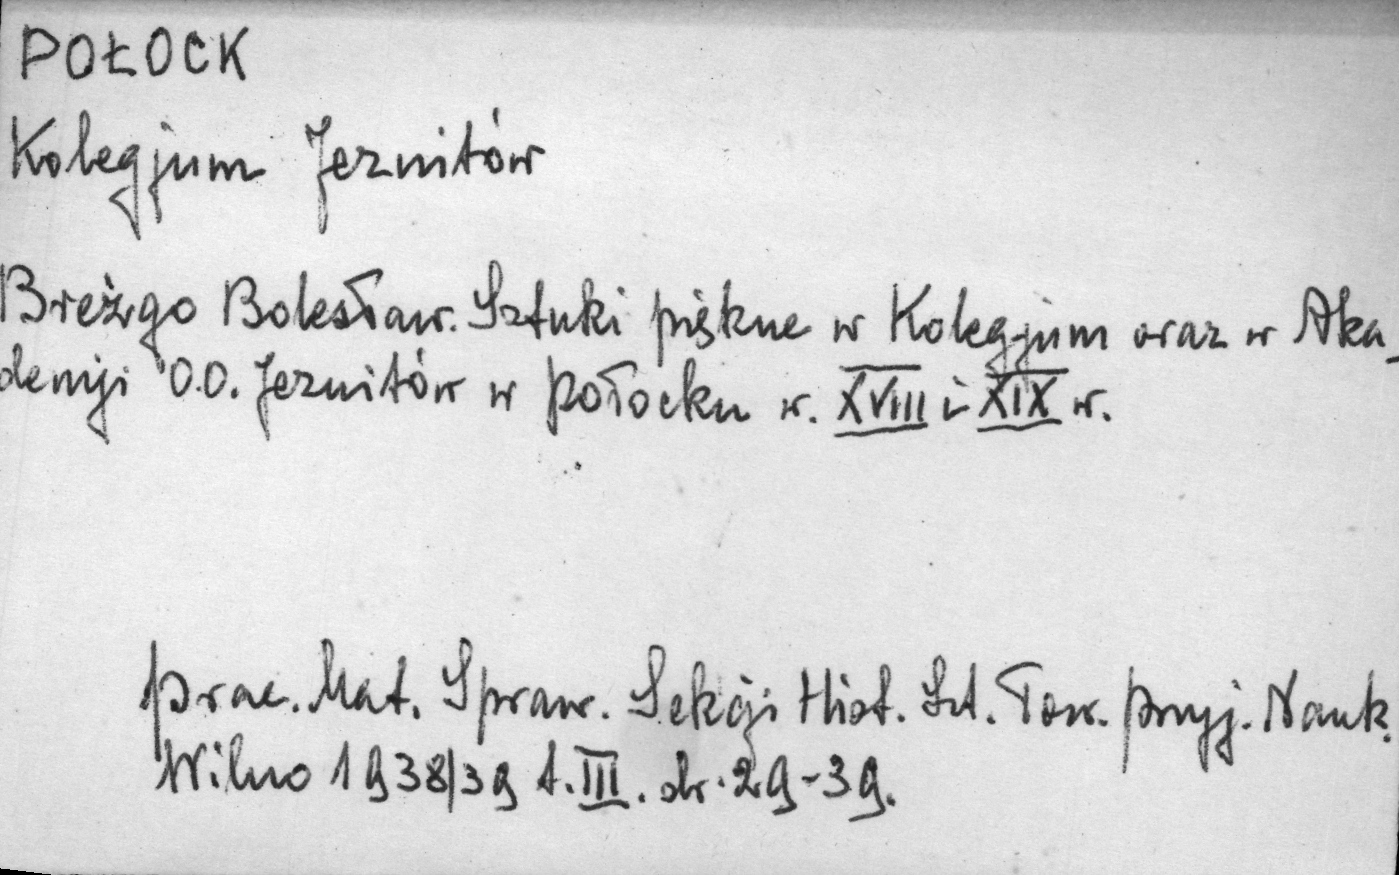 POŁOCK
Kolegjum Jezuitów
Breżgo Bolesław. Sztuki piękne w Kolegjum oraz w Aka_
demji O.O. Jezuitów w Połocku w. XVIII i XIX w.
Prac. Mat. Spraw. Sekcji Hist. Szt. Tow. Przyj. Nauk.
Wilno 1938/39 t. III. str. 29-39.